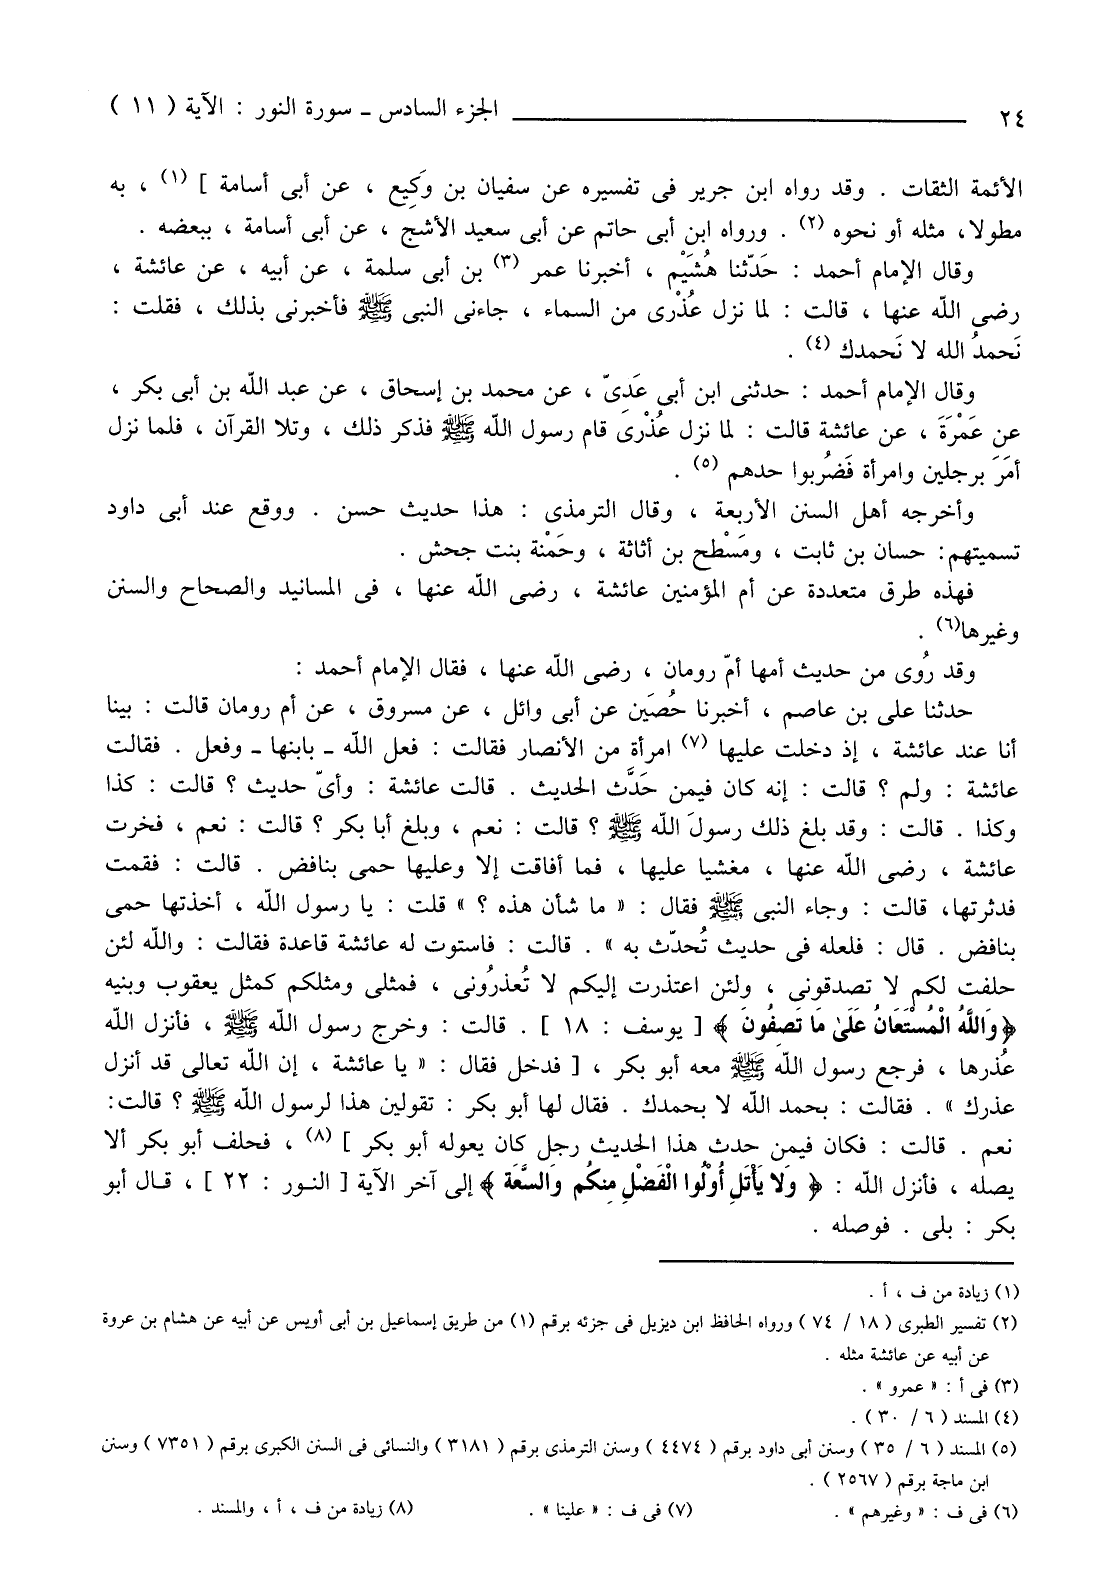 ٢٤ الجزء السادس ـ سورة النور : الآية ( ١١ )
الأئمة الثقات . وقد رواه ابن جرير فى تفسيره عن سفيان بن وَكِيع ، عن أبى أسامة ] (١) ، به
مطولا، مثله أو نحوه (٢) . ورواه ابن أبى حاتم عن أبى سعيد الأشج ، عن أبى أسامة ، ببعضه .
وقال الإمام أحمد : حَدّثنا هُشَيْم ، أخبرنا عمر (٣) بن أبى سلمة ، عن أبيه ، عن عائشة ،
رضى اللّه عنها ، قالت : لما نزل عُذْرى من السماء ، جاءنى النبى ﷺ فأخبرنى بذلك ، فقلت :
نَحمدُ الله لا نَحمدك (٤) .
وقال الإمام أحمد : حدثنى ابن أبى عَدِىّ ، عن محمد بن إسحاق ، عن عبد اللّه بن أبى بكر ،
عن عَمْرَةَ ، عن عائشة قالت : لما نزل عُذْرى قام رسول اللّه ﷺ فذكر ذلك ، وتلا القرآن ، فلما نزل
أمَرَ برجلين وامرأة فَضُربوا حدهم (٥) .
وأخرجه أهل السنن الأربعة ، وقال الترمذى : هذا حديث حسن . ووقع عند أبى داود
تسميتهم: حسان بن ثابت ، ومَسْطح بن أثاثة ، وحَمْنة بنت جحش .
فهذه طرق متعددة عن أم المؤمنين عائشة ، رضى اللّه عنها ، فى المسانيد والصحاح والسنن
وغيرها(٦) .
وقد رُوى من حديث أمها أمّ رومان ، رضى اللّه عنها ، فقال الإمام أحمد :
حدثنا على بن عاصم ، أخبرنا حُصَين عن أبى وائل ، عن مسروق ، عن أم رومان قالت : بينا
أنا عند عائشة ، إذ دخلت عليها (٧) امرأة من الأنصار فقالت : فعل اللّه ـ بابنها ـ وفعل . فقالت
عائشة : ولم ؟ قالت : إنه كان فيمن حَدَّث الحديث . قالت عائشة : وأىّ حديث ؟ قالت : كذا
وكذا . قالت : وقد بلغ ذلك رسولَ اللّه ﷺ ؟ قالت : نعم ، وبلغ أبا بكر ؟ قالت : نعم ، فخرت
عائشة ، رضى اللّه عنها ، مغشيا عليها ، فما أفاقت إلا وعليها حمى بنافض . قالت : فقمت
فدثرتها، قالت : وجاء النبى ﷺ فقال : « ما شأن هذه ؟ » قلت : يا رسول اللّه ، أخذتها حمى
بنافض . قال : فلعله فى حديث تُحدّث به » . قالت : فاستوت له عائشة قاعدة فقالت : واللّه لئن
حلفت لكم لا تصدقونى ، ولئن اعتذرت إليكم لا تُعذرُونى ، فمثلى ومثلكم كمثل يعقوب وبنيه
﴿ وَاللَّهُ الْمُسْتَعَانُ عَلَىٰ مَا تَصِفُونَ ﴾ [ يوسف : ١٨ ] . قالت : وخرج رسول اللّه ﷺ ، فأنزل اللّه
عُذرها ، فرجع رسول اللّه ﷺ معه أبو بكر ، [ فدخل فقال : « يا عائشة ، إن اللّه تعالى قد أنزل
عذرك » . فقالت : بحمد اللّه لا بحمدك . فقال لها أبو بكر : تقولين هذا لرسول اللّه ﷺ ؟ قالت:
نعم . قالت : فكان فيمن حدث هذا الحديث رجل كان يعوله أبو بكر ] (٨) ، فحلف أبو بكر ألا
يصله ، فأنزل اللّه : ﴿ وَلا يَأْتَلِ أُوْلُوا الْفَضْلِ مِنكُم وَالسَّعَة ﴾ إلى آخر الآية [ النـور : ٢٢ ] ، قـال أبو
بكر : بلى . فوصله .
(١) زيادة من ف ، أ .
(٢) تفسير الطبرى ( ١٨ / ٧٤ ) ورواه الحافظ ابن ديزيل فى جزئه برقم (١) من طريق إسماعيل بن أبى أويس عن أبيه عن هشام بن عروة
عن أبيه عن عائشة مثله .
(٣) فى أ : « عمرو » .
(٤) المسند ( ٦ / ٣٠ ) .
(٥) المسند ( ٦ / ٣٥ ) وسنن أبى داود برقم ( ٤٤٧٤ ) وسنن الترمذى برقم ( ٣١٨١ ) والنسائى فى السنن الكبرى برقم ( ٧٣٥١ ) وسنن
ابن ماجة برقم ( ٢٥٦٧ ) .
(٦) فى ف : « وغيرهم » . (٧) فى ف : « علينا » . (٨) زيادة من ف ، أ ، والمسند .